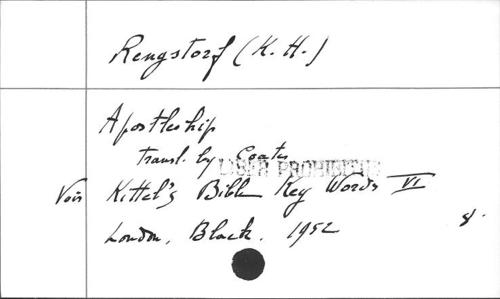 Rengstorf (K. H.)
Apostleship
transl. by Coates
LIBER PROHIBITUS
Voir Kittel's Bible Key Words VI
London, Black. 1952 8.